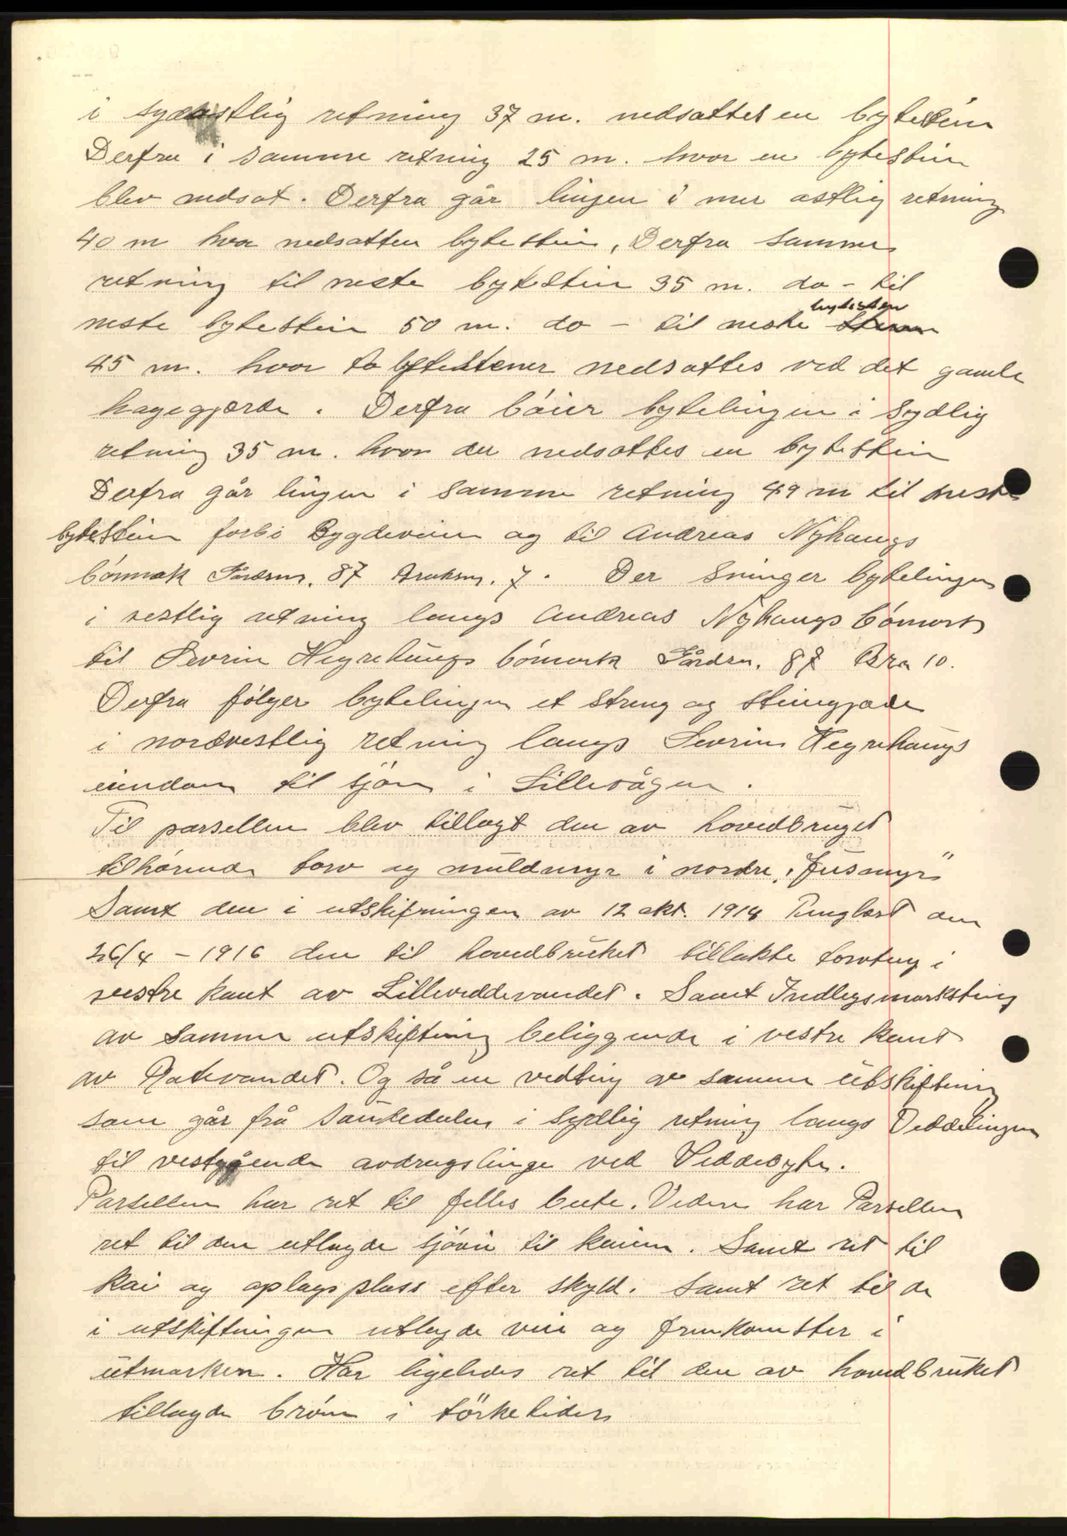 i sydøstlig retning 37 m. nedsattes en bytestein
Derfra i samme retning 25 m. hvor en bytestein
blev nedsat. Derfra går linjen i mer østlig retning
40 m hvor nedsatten bytestein, Derfra samme
retning til neste bytestein 35 m. do - til
neste bytestein 50 m. do - til neste bytesten
45 m. hvor to bytestener nedsattes ved det gamle
hagegjærde. Derfra bøier bytelingen i Sydlig
retning 35 m. hvor der nedsattes en bytestein
Derfra går lingen i samme retning 49 m til neste
bytestein forbi Bygdeveien og til Andreas Nyhaugs
bømark Gårdsnr. 87 Bruksnr. 7. Der svinger bytelingen
i vestlig retning langs Andreas Nyhaugs bømark
til Sevrin Hegrehaugs bømark Gårdsn. 87 Brn 10.
Derfra følger bytelingen et streng og steingjæde
i nordvestlig retning langs Sevrin Hegrehaugs
eiendom til sjøen i Lillevågen.
Til parsellen blev tillagt den av hovedbruget
tilhørende torv og muldmyr i nordre "Fusmyr"
Samt den i utskifningen av 12 okt. 1914 Tinglæst den
26/4 - 1916 den til hovedbruket tillakte torvteig i
vestre kant av Lilleveddevandet. Samt Indlegsmarksteig
av samme utskiftning beliggende i vestre kant
av Ratevandet. Og så en vedteig av samme utskiftning
som går fra Saudedalen i sydlig retning langs Veddelingen
til vestgående avdragslinge ved Veddebyte.
Parsellen har ret til felles beite. Videre har Parsellen
ret til den utlagde sjøvei til kaien. Samt ret til
kai og oplagsplass efter skyld. Samt ret til de
i utskiftningen utlagde veie og fremkomster i
utmarken. Har ligeledes ret til den av hovedbruket
tillagde brøn i tørketider